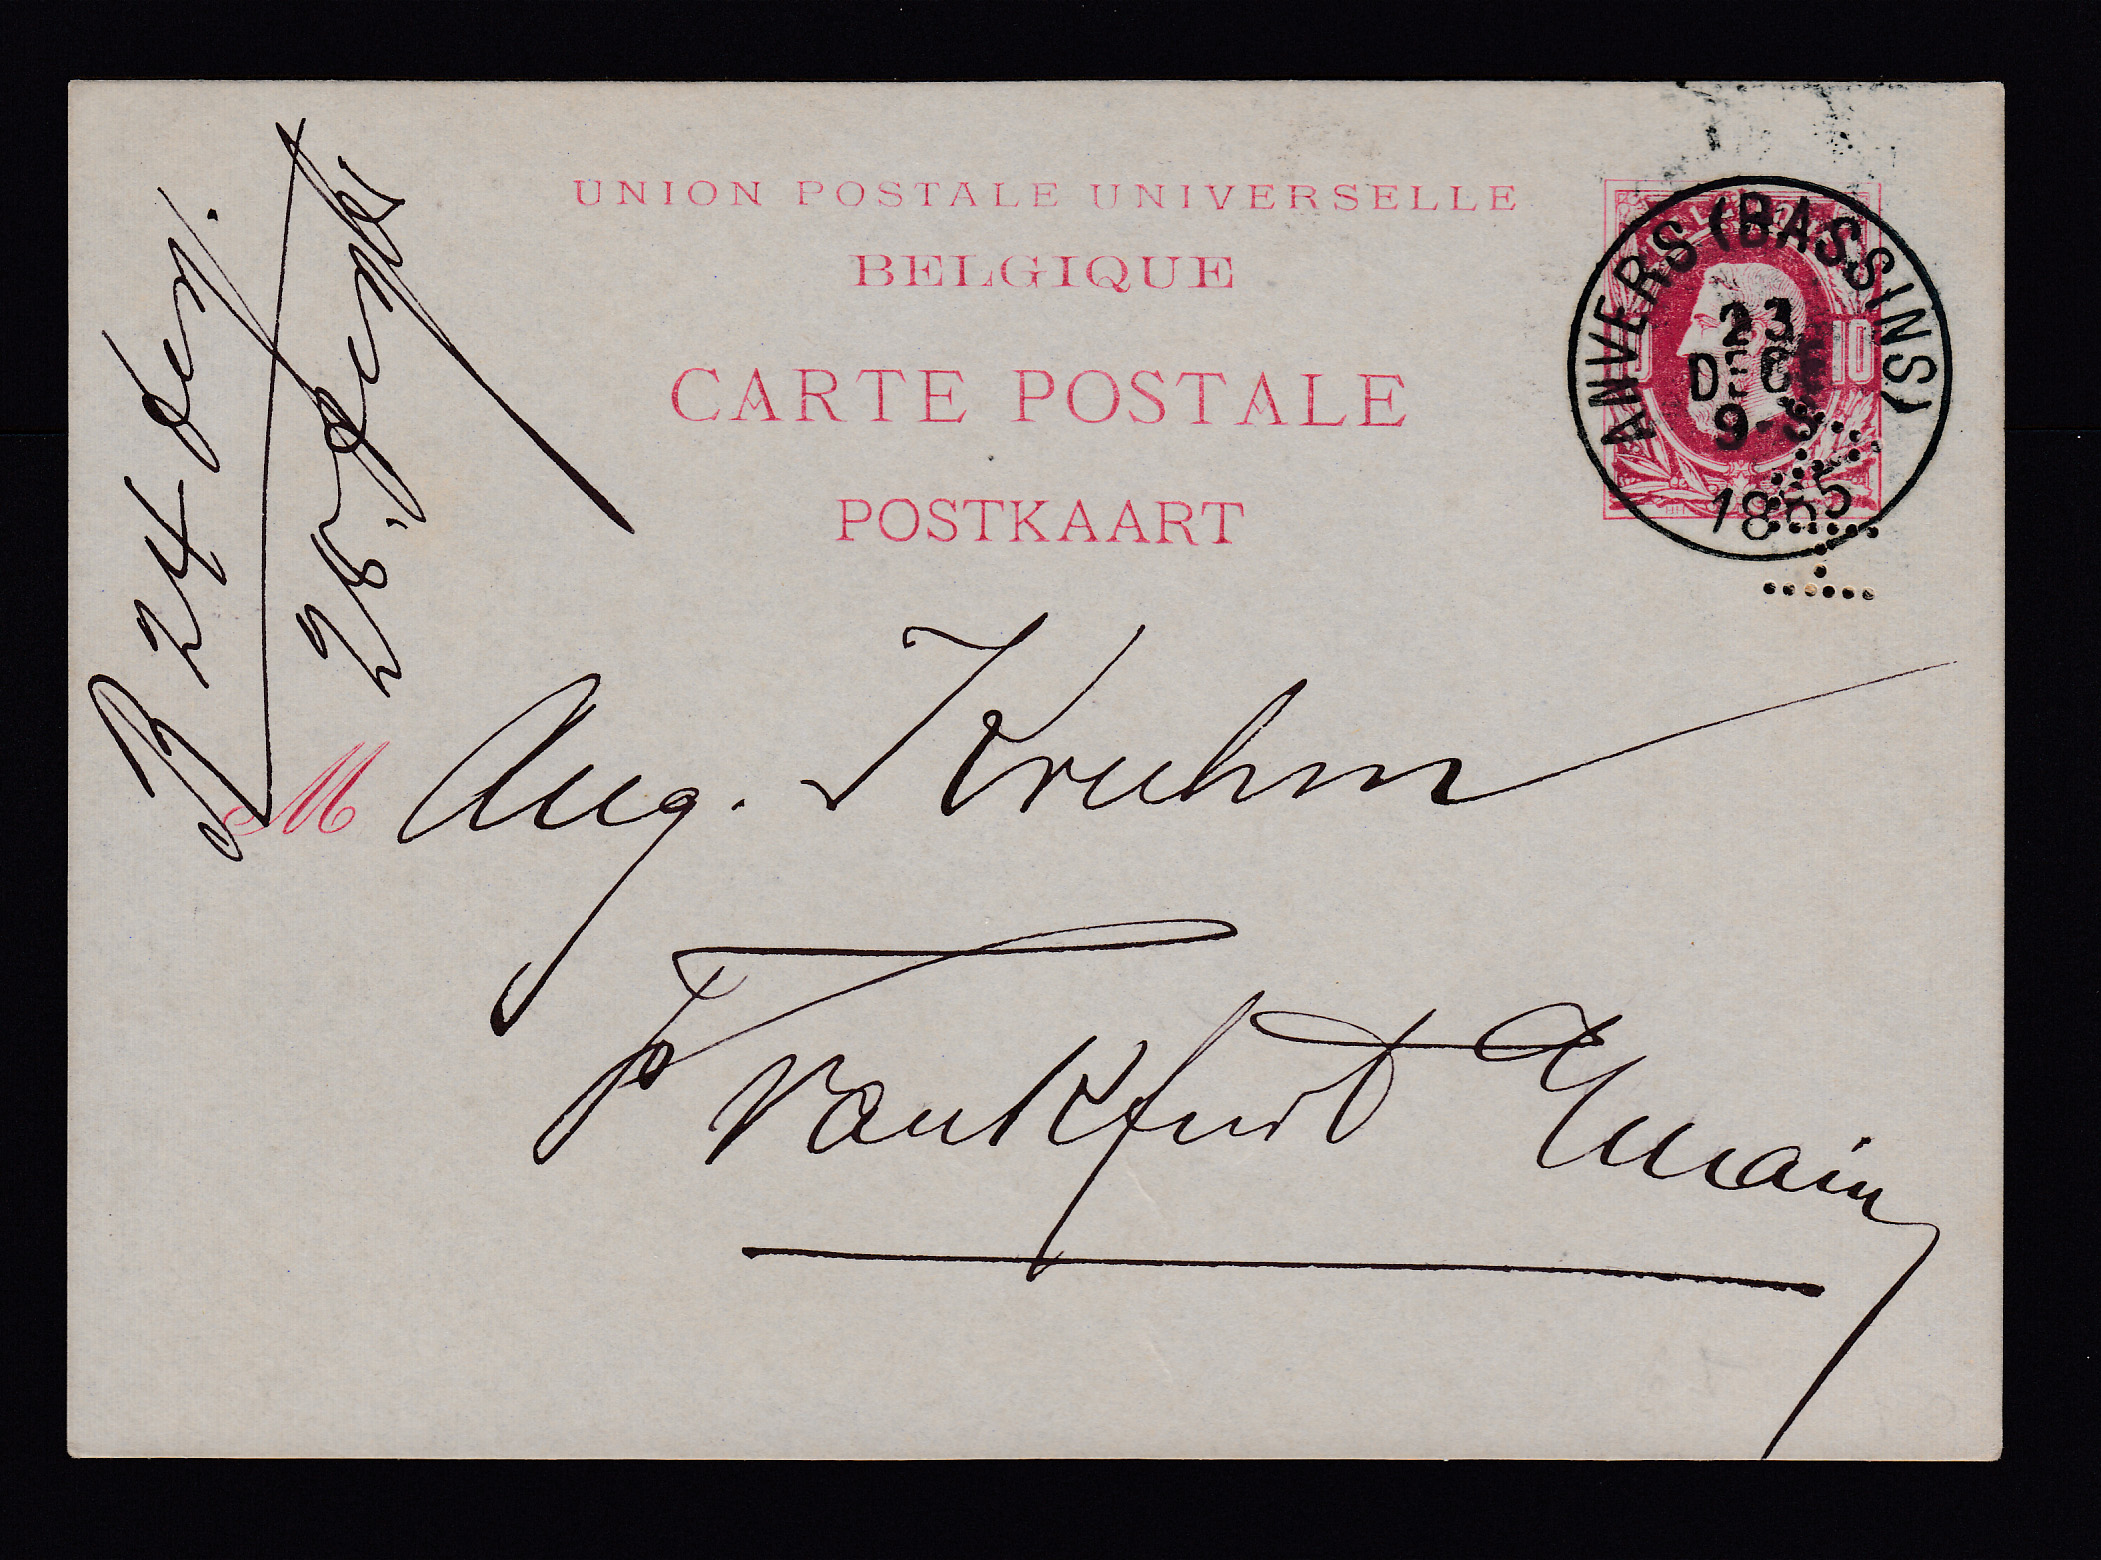 UNION POSTALE UNIVERSELLE
BELGIQUE
CARTE POSTALE
POSTKAART
ANVERS (BASSINS)
23
DEC
9-
10
B 24
28
M Aug. Kruhm
Frankfurt Main